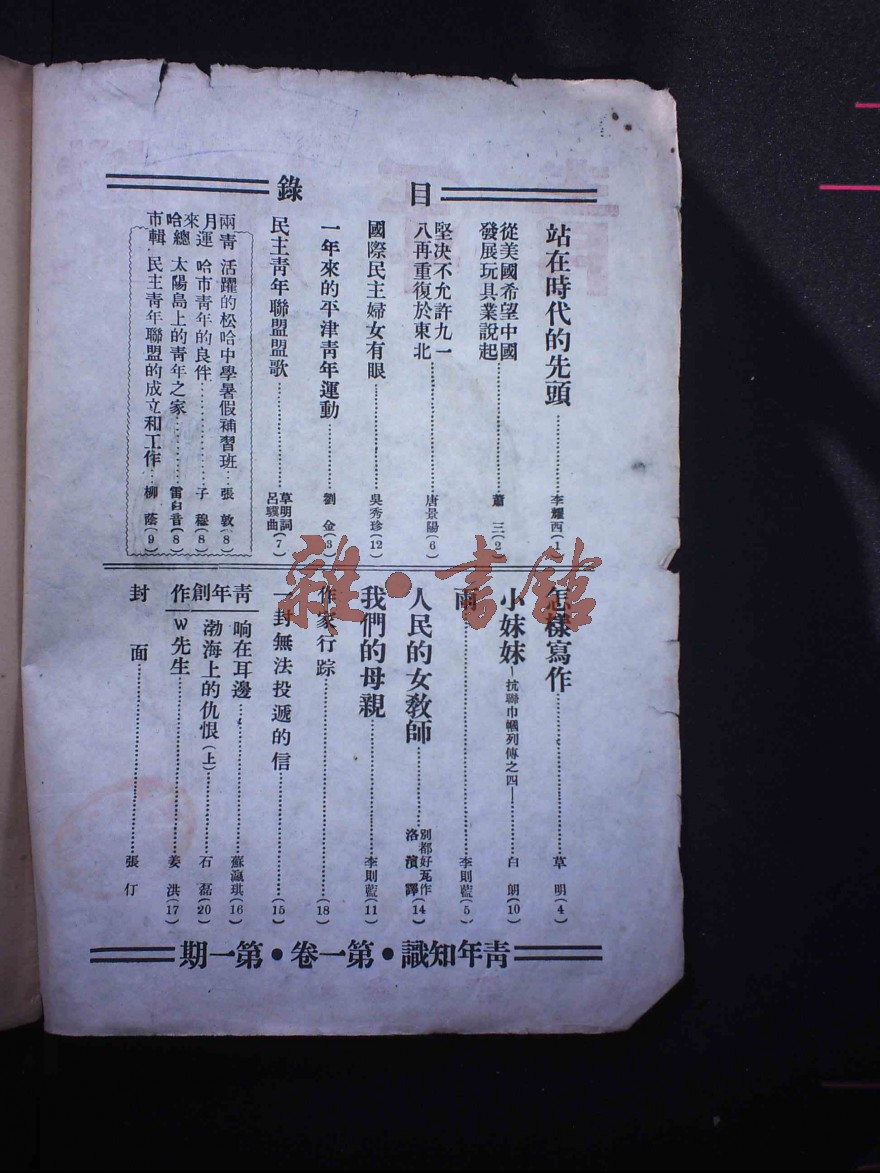 目錄
站在時代的先頭…………李耀西(1)
從美國希望中國
發展玩具業說起…………蕭 三(2)
堅决不允許九一
八再重復於東北…………唐景陽(6)
國際民主婦女有眼…………吳秀珍(12)
一年來的平津靑年運動…………劉 金(3)
民主靑年聯盟盟歌…………草明詞
呂驥曲(7)
兩月來哈市
靑運總輯
活躍的松哈中學暑假補習班…張 敦(8)
哈市靑年的良伴…………子 穆(8)
太陽島上的靑年之家…………雷白音(8)
民主靑年聯盟的成立和工作…柳 蔭(9)
怎樣寫作…………草 明(4)
小妹妹—抗聯巾幗列傳之四—…………白 朗(10)
雨…………李則藍(5)
人民的女敎師…………別都好瓦作
洛 濱 譯(14)
我們的母親…………李則藍(11)
作家行踪…………(18)
一封無法投遞的信…………(15)
靑年創作
响在耳邊…………蘇瀛琪(16)
渤海上的仇恨(上)…………石 磊(20)
W先生…………姜 洪(17)
封 面…………張 仃
靑年知識•第一卷•第一期
雜•書館